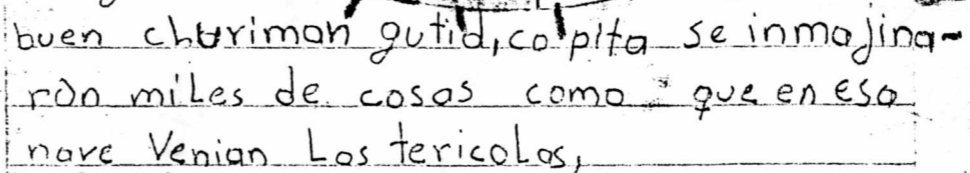 buen churiman gutid, copita se inmajina-
ron miles de cosas como que en esa
nave venian Los tericolos,